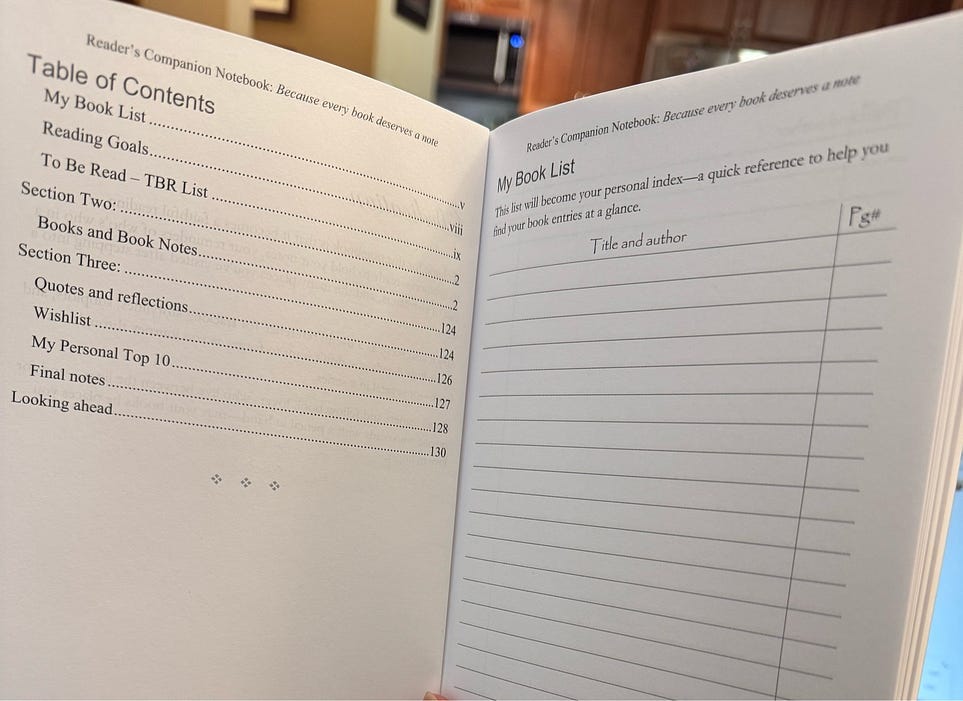 Reader's Companion Notebook: Because every book deserves a note
Table of Contents
My Book List ........ v
Reading Goals ........ viii
To Be Read – TBR List ........ ix
Section Two: ........ 2
Books and Book Notes ........ 2
Section Three: ........ 124
Quotes and reflections ........ 124
Wishlist ........ 126
My Personal Top 10 ........ 127
Final notes ........ 128
Looking ahead ........ 130
Reader's Companion Notebook: Because every book deserves a note
My Book List
This list will become your personal index—a quick reference to help you
find your book entries at a glance.
Title and author Pg#